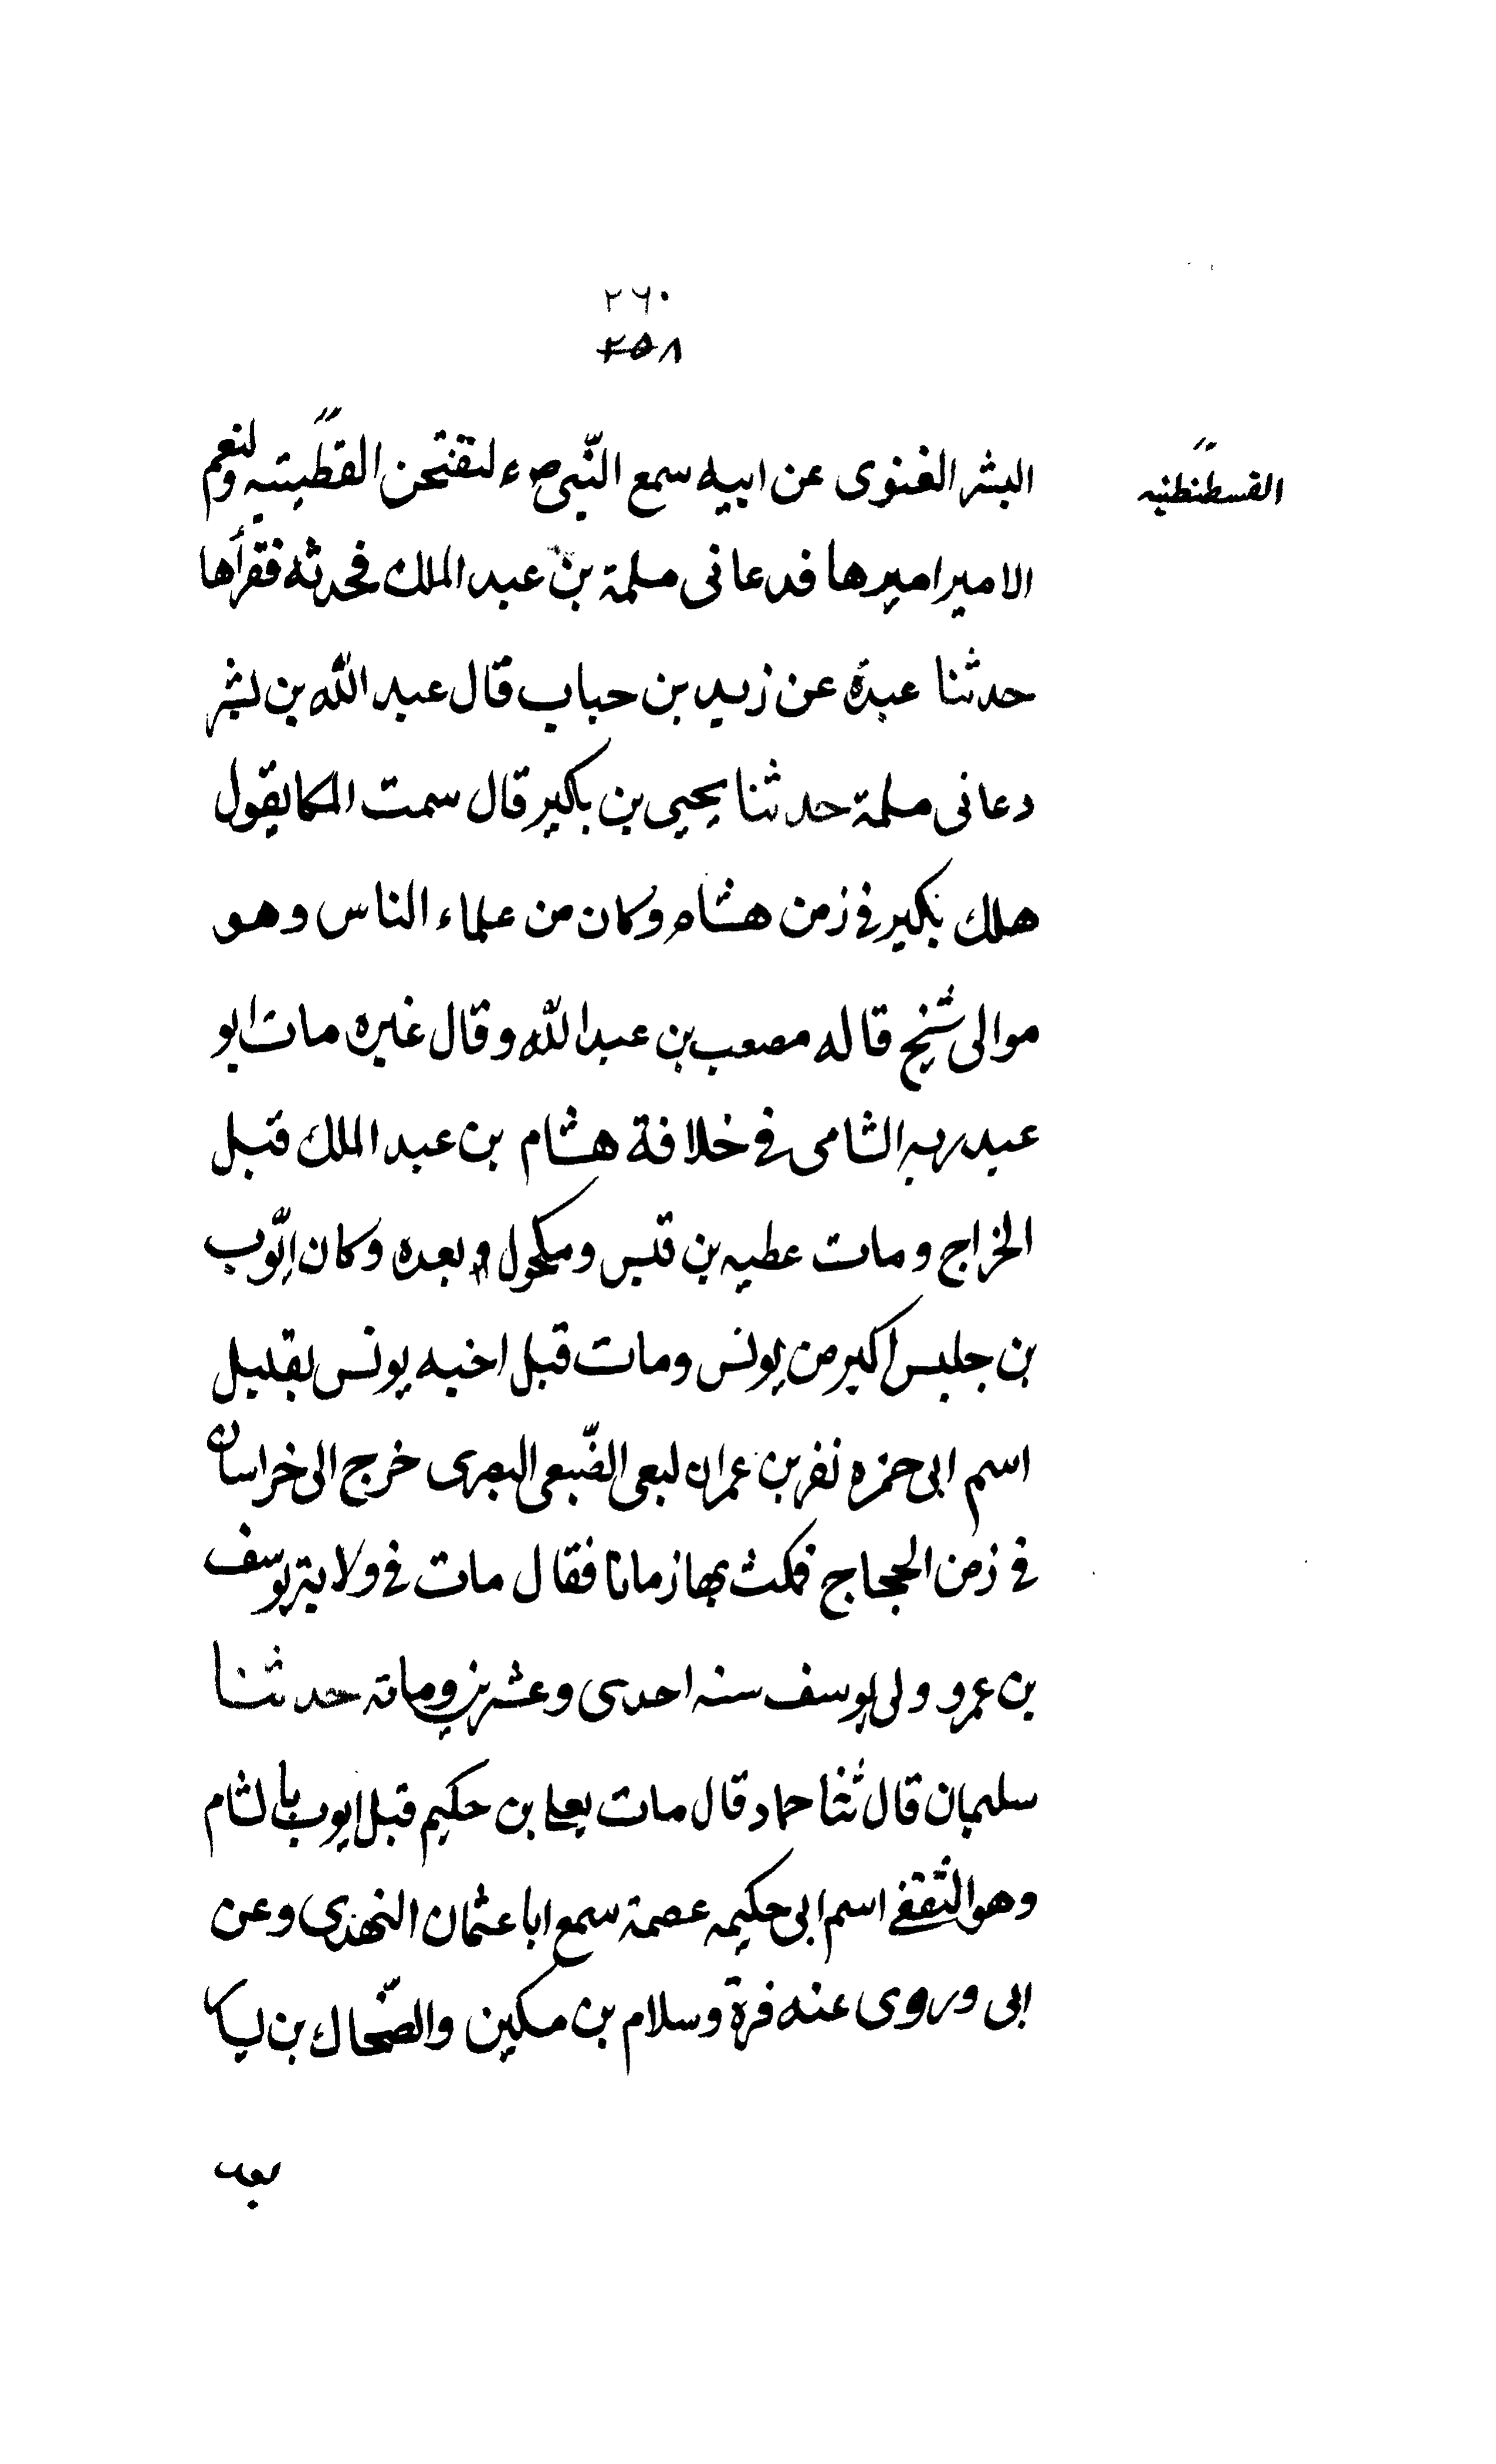 ٢٦٠
٢٥٨
القسطنطنيه
البشر الغنوى عن ابيه سمع النّبى ص ء لتفتحن القطنيتيه ولنعم
الامير اميرها فدعانى مسلمة بن عبد الملك فحدثه فقرأها
حدثنا عبدة عن زيد بن حباب قال عبد الله بن بشر
دعانى مسلمة حدثنا يحيى بن بكير قال سمت المكا يقول
هلك بكير فى زمن هشام وكان من علماء الناس وهو
موالى شيخ قاله مصعب بن عبد الله وقال غيره مات ابو
عبد ربه الشامى فى خلافة هشام بن عبد الملك قبل
الخراج ومات عطيه بن قيس ومكحول وبعده وكان ايّوب
بن حلبس اكبر من يونس ومات قبل اخيه يونس بقليل
اسم ابى حمزه نفر بن عمران لبعى الضّبعى البصرى خرج الى خراسان
فى زمن الحجاج فمكث بها زمانا فقال مات فى ولاية يوسف
بن عمرو ولى يوسف سنه احدى وعشرين وماته حدثنا
سليمان قال ثنا حماد قال مات يعلى بن حكيم قبل ايوب بالشام
وهو الثقفى اسم ابى حكيمه عصمة سمع ابا عثمان النهدى وعن
ابى وروى عنه قرة وسلام بن مسكين والضّحاك بن يسا
بعد